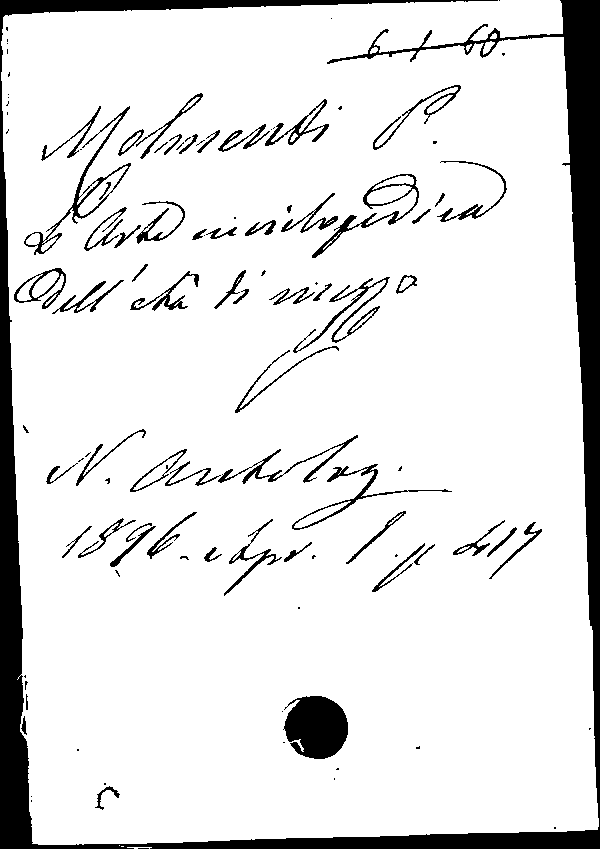 6.1 60.
Molmenti P.
L'Arte enciclopedica
dell'età di mezzo
N. Antolog.
1896. Apr. 1. p 417